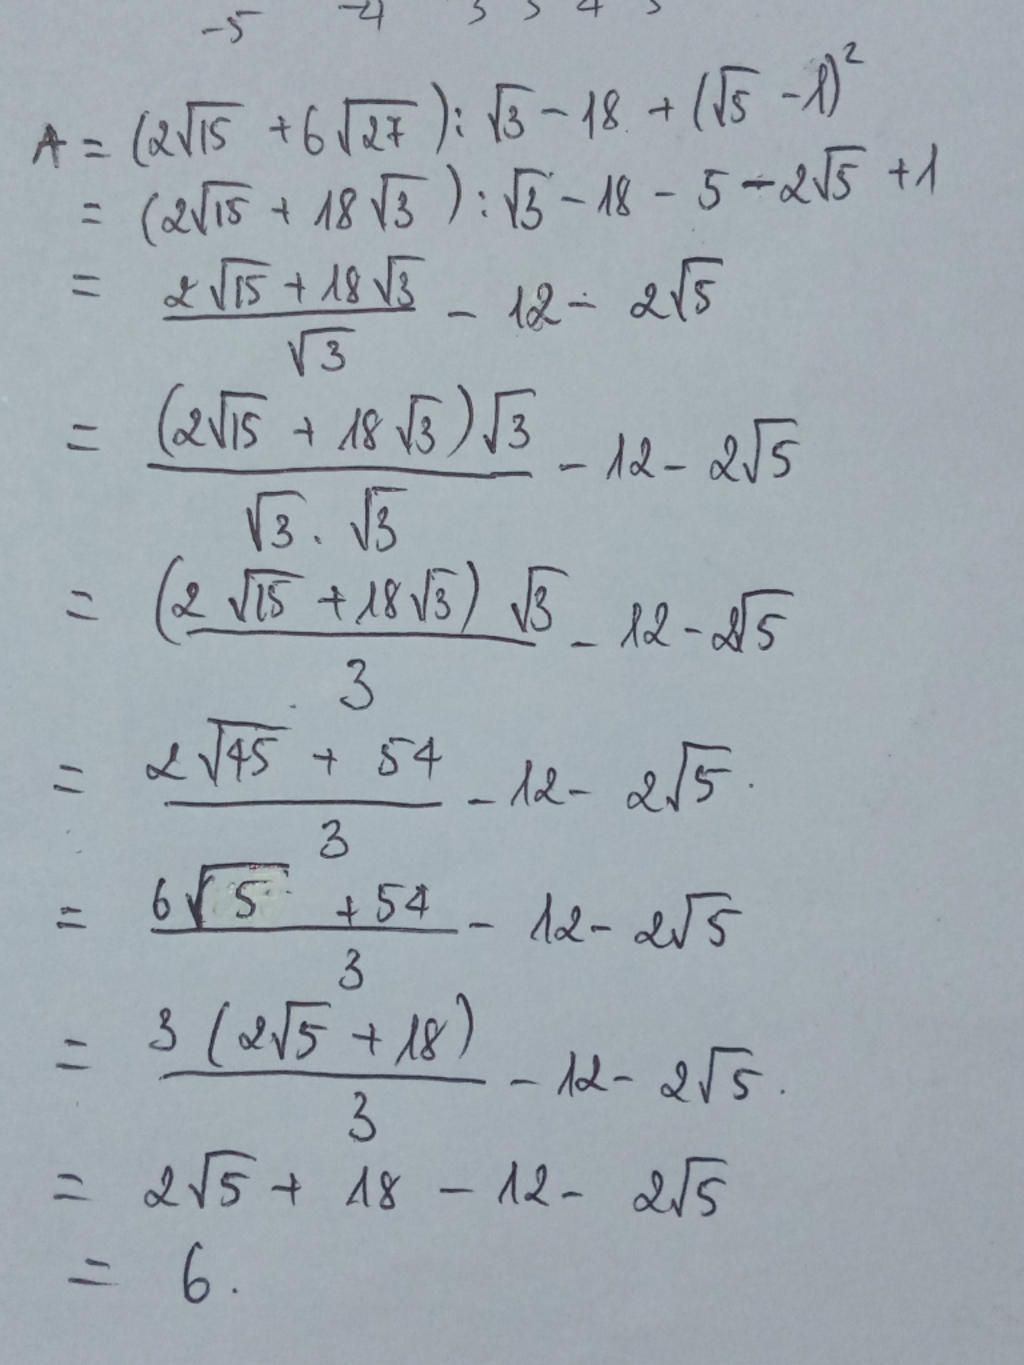 -5 -4 3 3 4 3
A = (2√15 + 6√27) : √3 - 18 + (√5 - 1)²
= (2√15 + 18√3) : √3 - 18 - 5 - 2√5 + 1
= (2√15 + 18√3)/√3 - 12 - 2√5
= (2√15 + 18√3)√3/(√3 . √3) - 12 - 2√5
= (2√15 + 18√3)√3/3 - 12 - 2√5
= (2√45 + 54)/3 - 12 - 2√5.
= (6√5 + 54)/3 - 12 - 2√5
= 3(2√5 + 18)/3 - 12 - 2√5.
= 2√5 + 18 - 12 - 2√5
= 6.